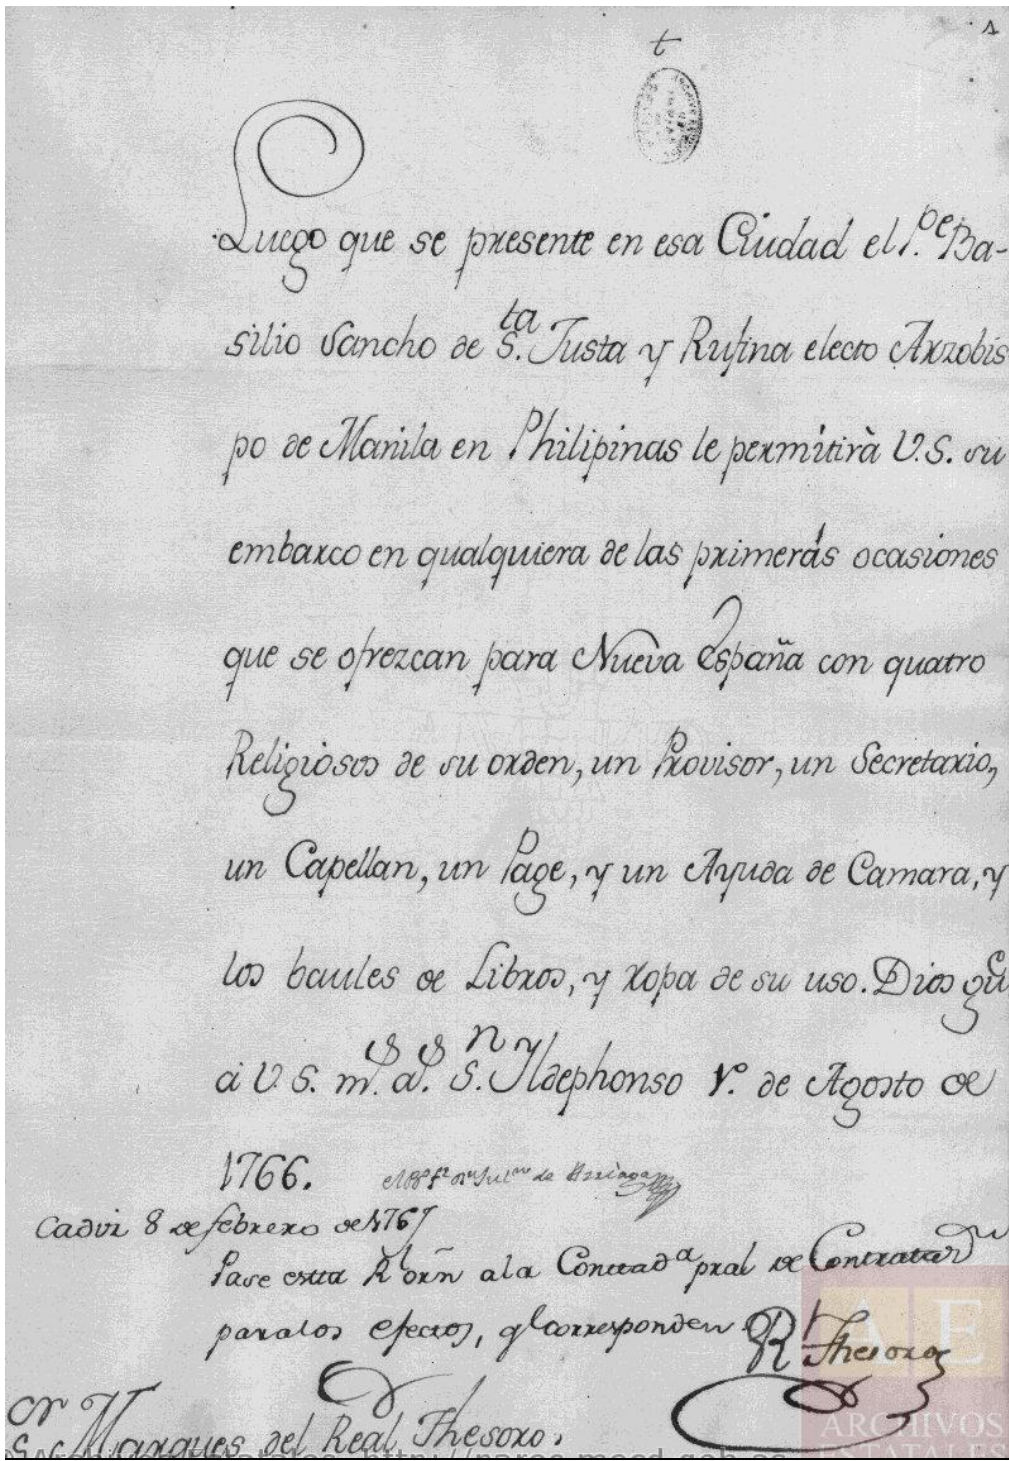 1
t
Luego que se presente en esa Ciudad el P.e Ba-
silio Sancho de S.ta Justa y Rufina electo Arzobis
po de Manila en Philipinas le permitirà V.S. su
embarco en qualquiera de las primeras ocasiones
que se ofrezcan para Nueva España con quatro
Religiosos de su orden, un Provisor, un Secretario,
un Capellan, un Page, y un Ayuda de Camara, y
los baules de Libros, y ropa de su uso. Dios gue
a V.S. m.s a.s S.n Yldephonso 1.o de Agosto de
1766.
el B.o Fr. Dn Julian de Arriaga
Cadiz 8 de febrero de 1767
Pase esta Rl orn ala Contad.a pral de Contratan
paralos efectos, q corresponden
Rl Thesoro
Sor Marques del Real Thesoro.
ARCHIVOS
ESTATALES